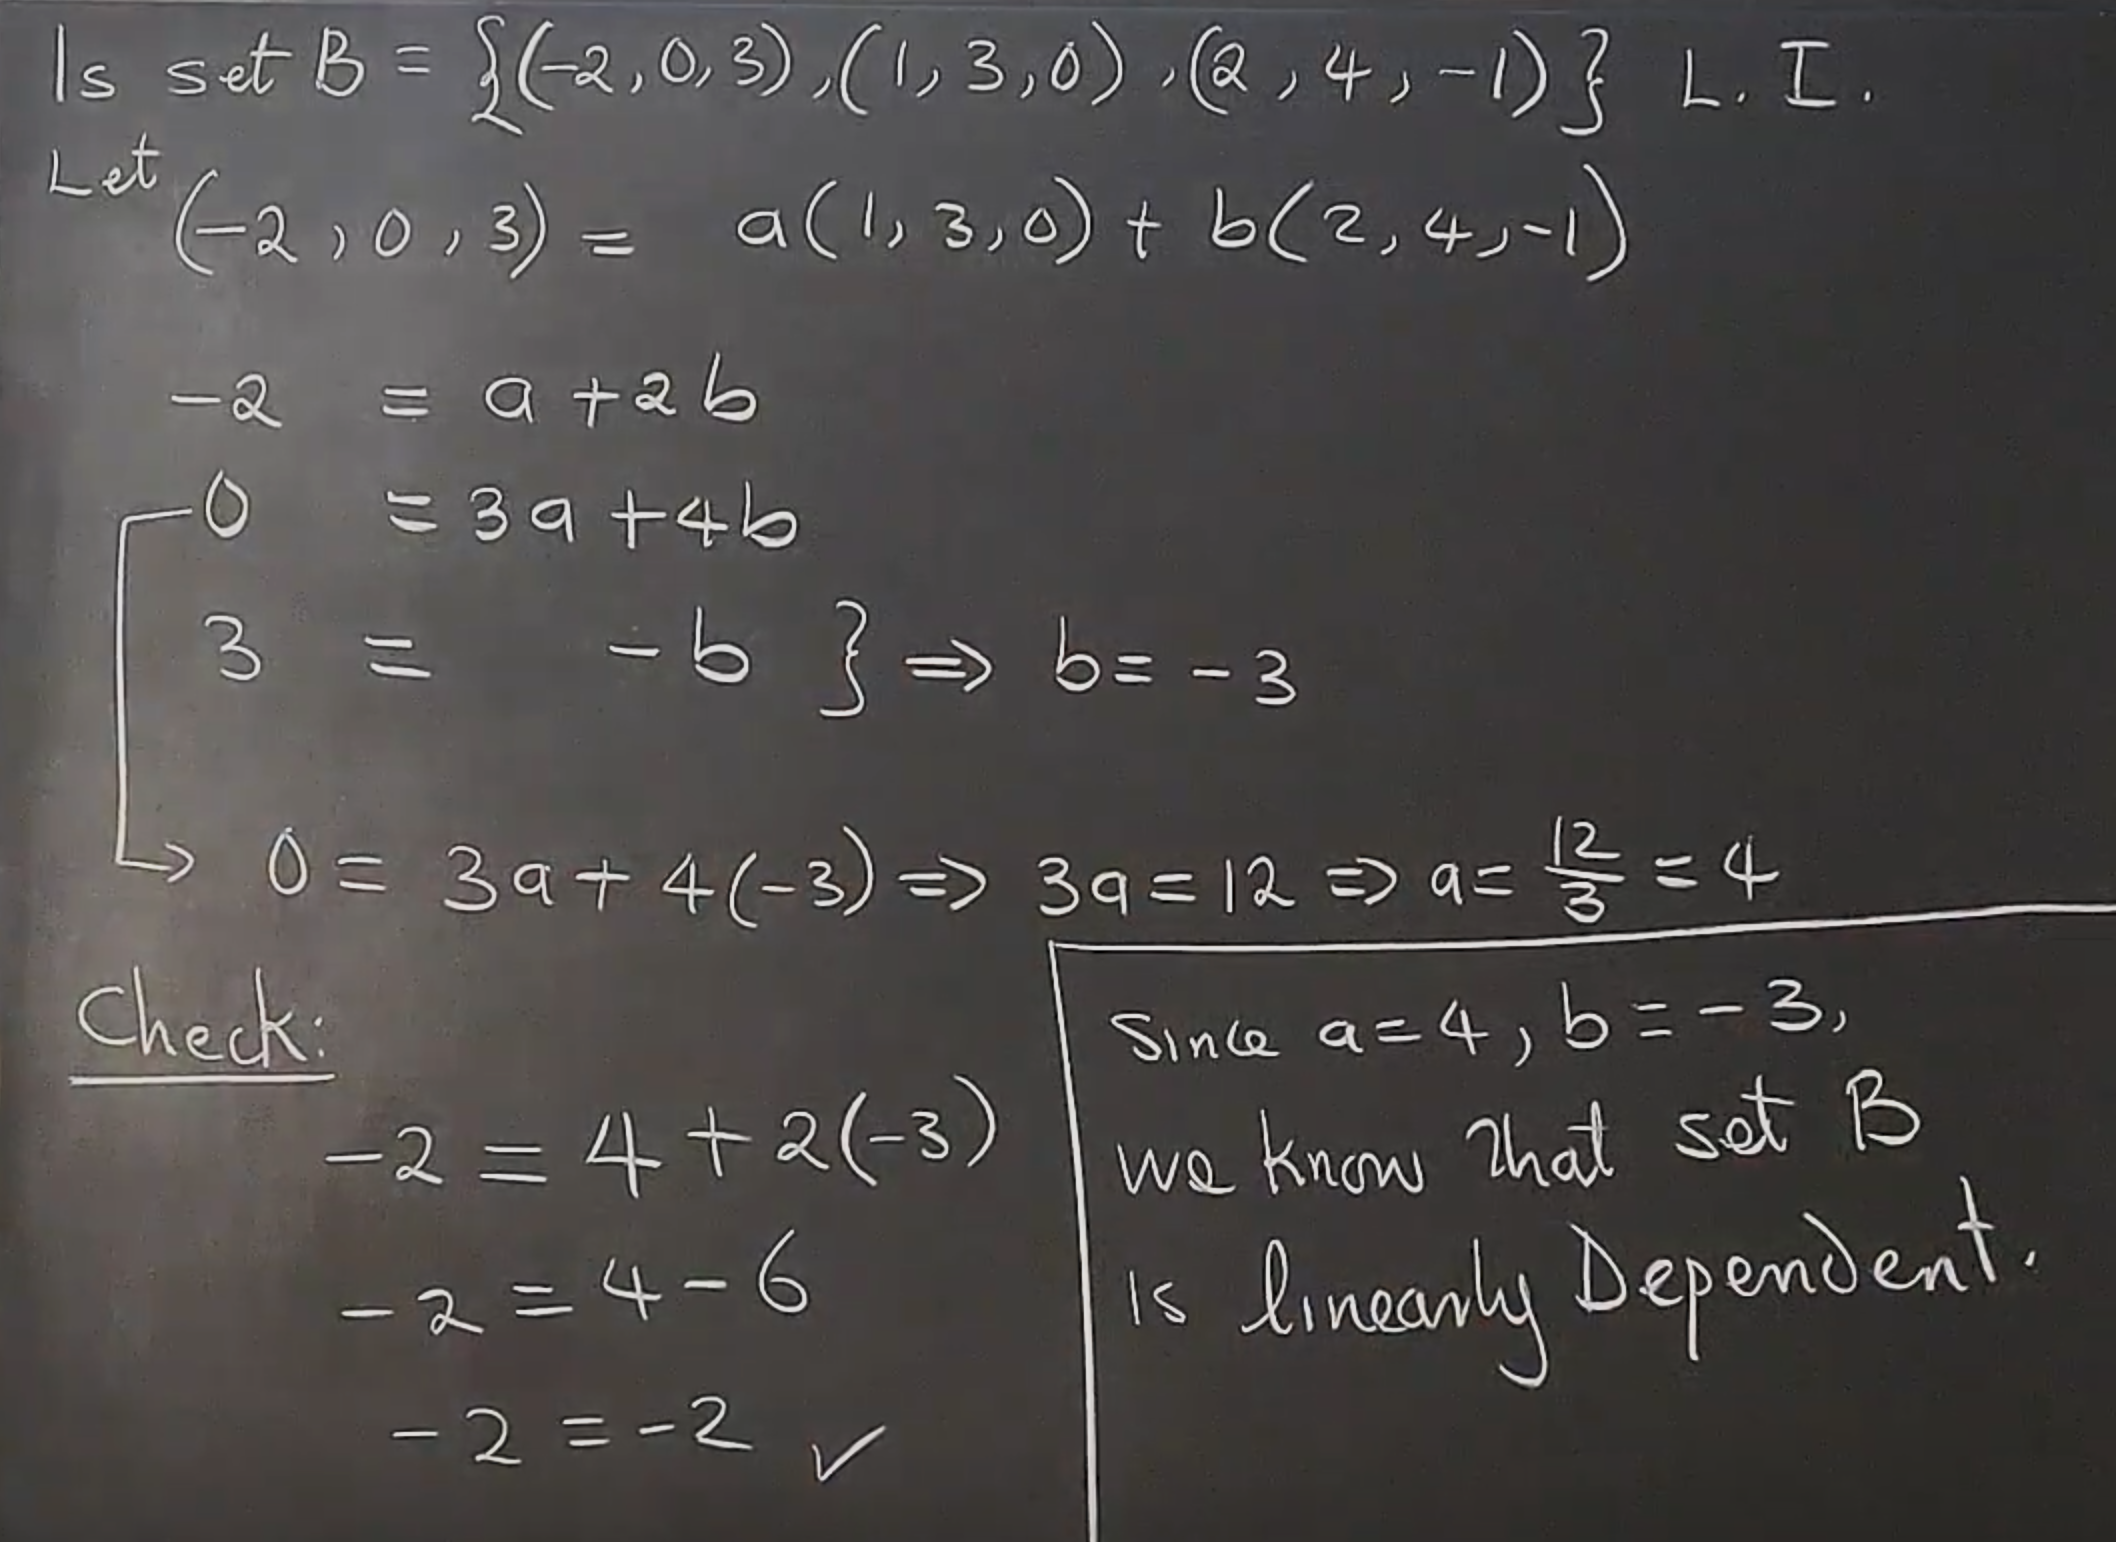 Is set B = {(-2,0,3),(1,3,0),(2,4,-1)} L.I.
Let
(-2,0,3) = a(1,3,0) + b(2,4,-1)
-2 = a+2b
0 = 3a+4b
3 = -b } ⇒ b = -3
→ 0 = 3a+4(-3) ⇒ 3a = 12 ⇒ a = 12/3 = 4
Check:
-2 = 4+2(-3)
-2 = 4-6
-2 = -2 ✓
Since a=4, b=-3,
we know that set B
is linearly Dependent.